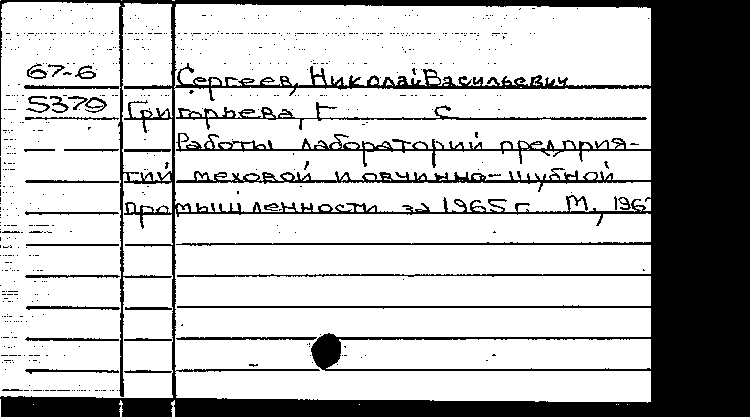 67-6 Сергеев, Николай Васильевич
5379 Григорьева, Г С
Работы лабораторий предприя-
тий меховой и овчинно-шубной
промышленности за 1965 г. М., 196